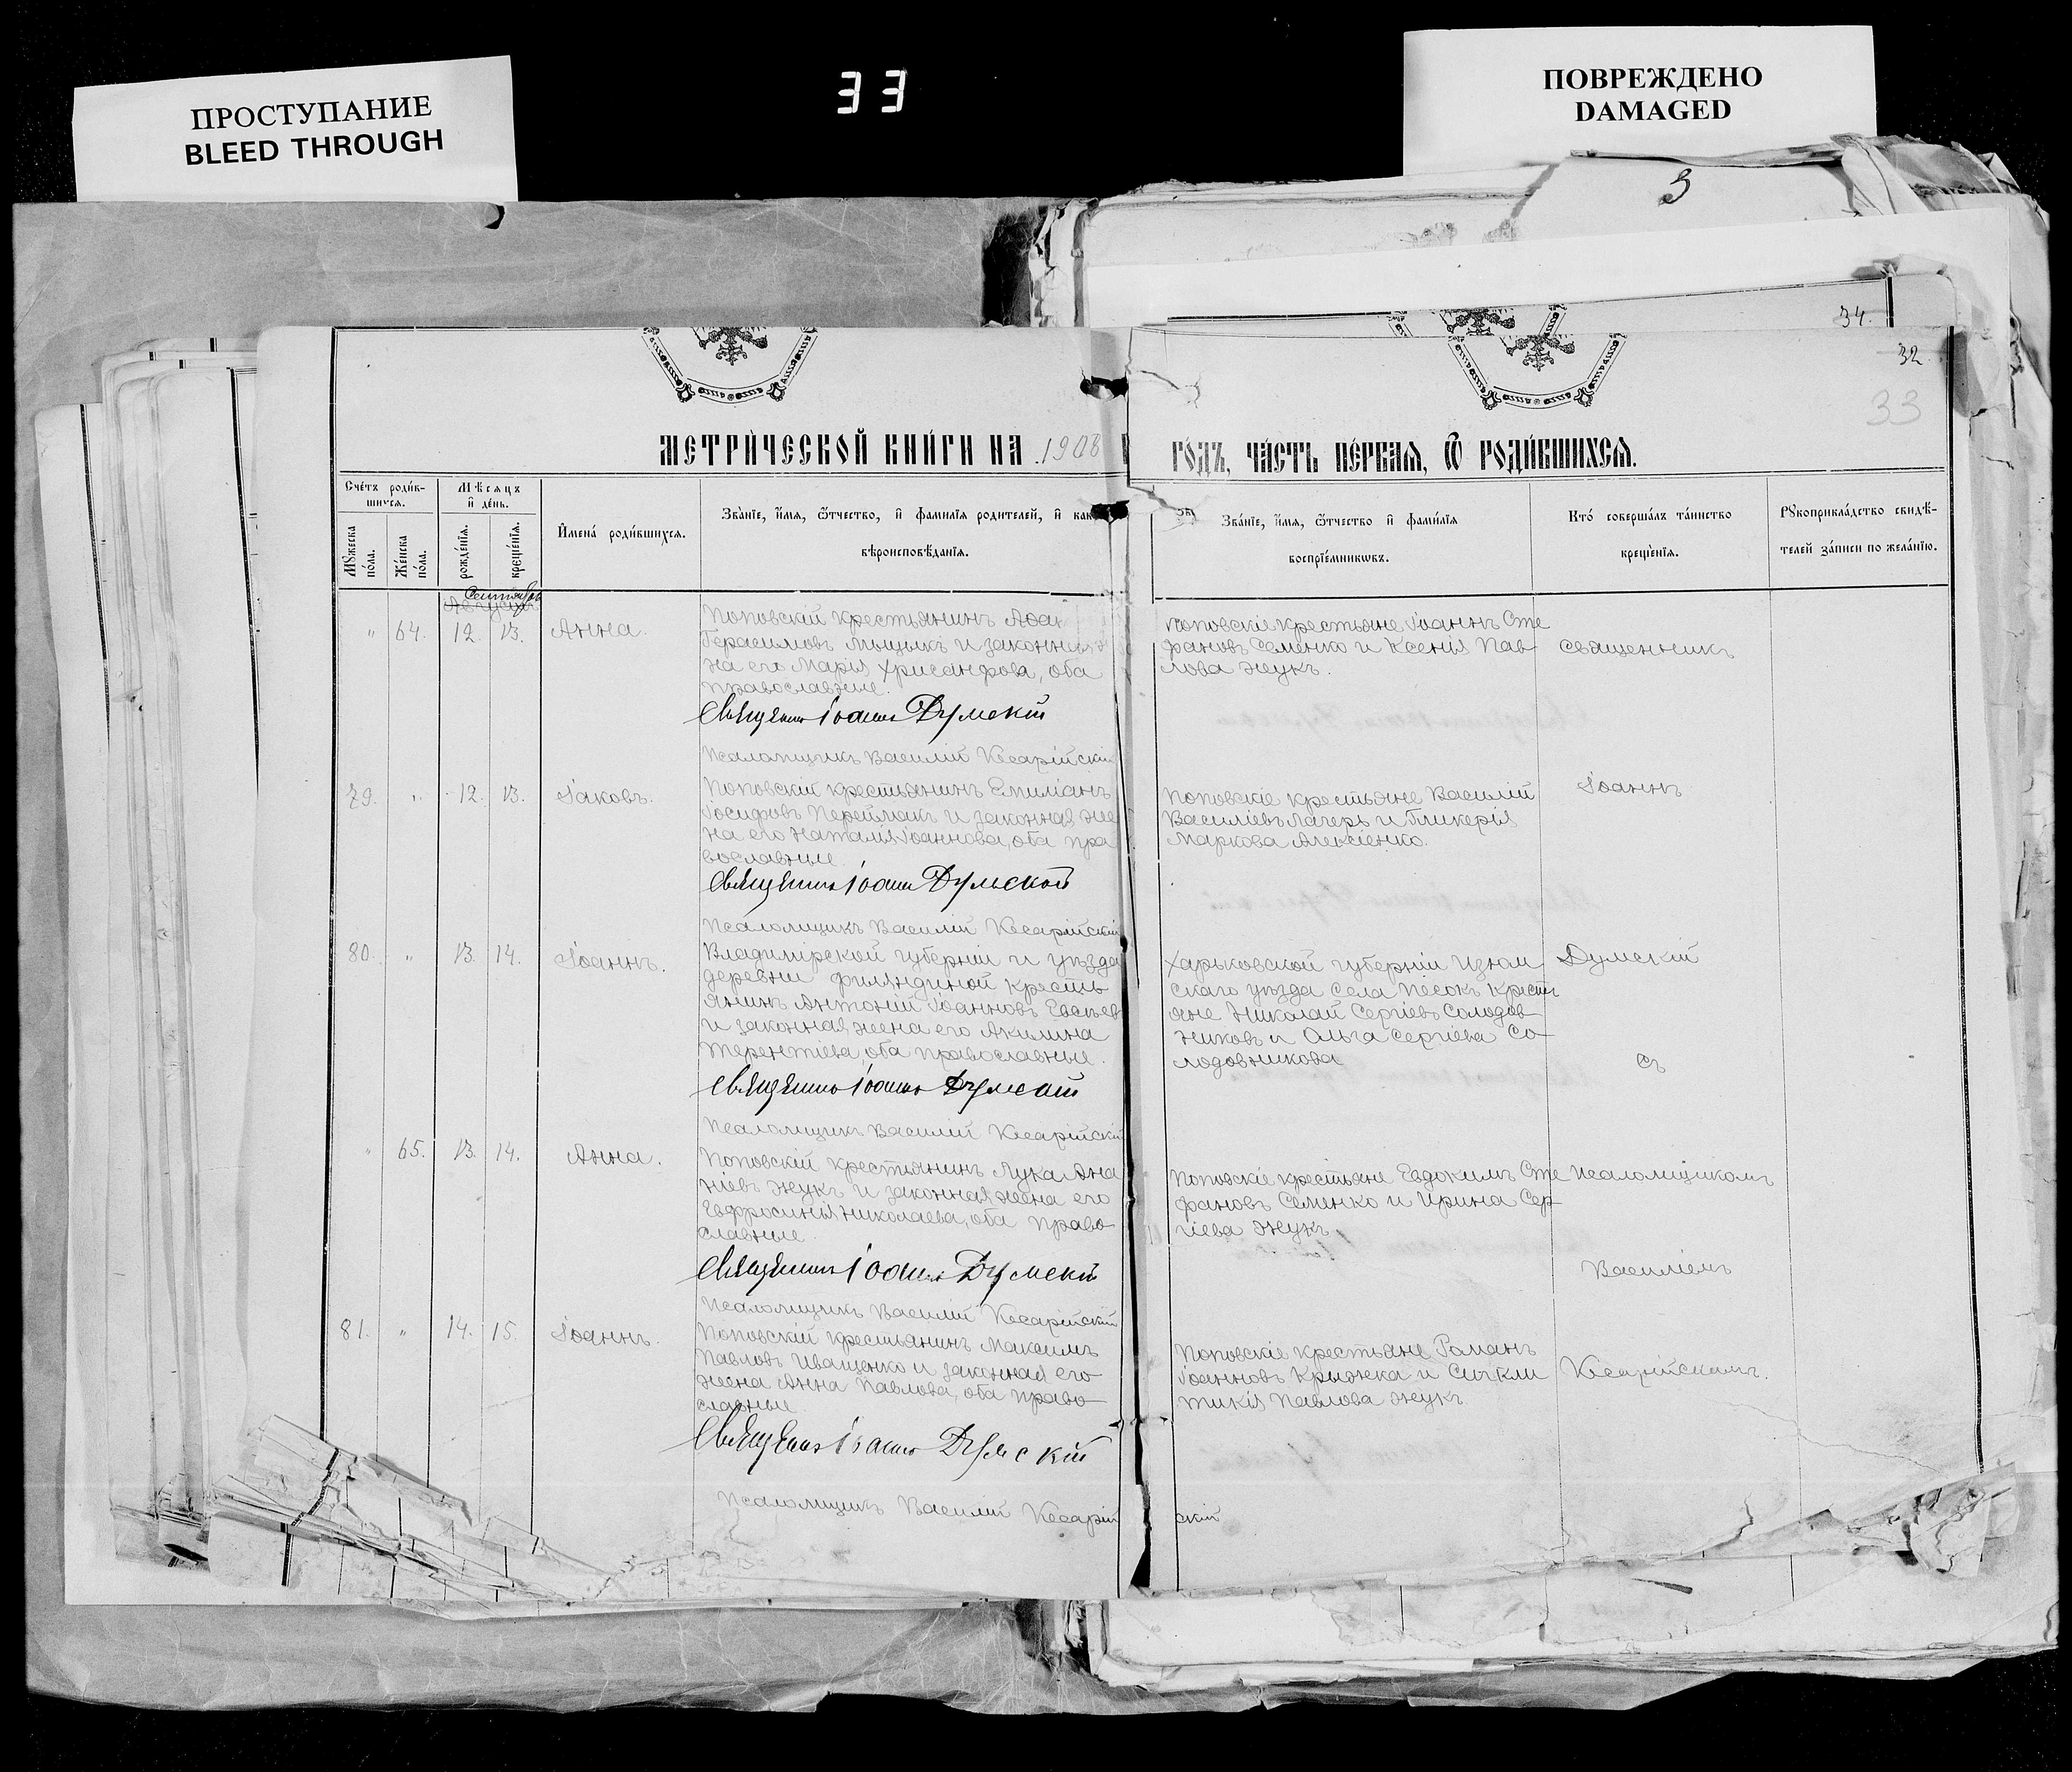 ПРОСТУПАНИЕ
BLEED THROUGH
33
ПОВРЕЖДЕНО
DAMAGED
3
34.
32
33
МЕТРИ́ЧЕСКОЙ КНИ́ГИ НА 1908
ГО́ДЪ, ЧА́СТЬ ПЕ́РВАЯ, Ѿ РОДИ́ВШИХСЯ.
Сче́тъ роди́в-
шихся.
Мѣсяцъ
и҆ де́нь.
Мꙋ́жеска
по́ла.
Же́нска
по́ла.
рожде́нїя.
креще́нїя.
И҆мена̀ роди́вшихся.
Зва́нїе, и҆́мя, ѻ҆́тчество, и҆ фамилїя родителей, и҆ како
вѣроисповѣ́данїя.
Зва́нїе, и҆́мя, ѻ҆́тчество и҆ фами́лїя
воспрїе́мникωвъ.
Кто́ соверша́лъ та́инство
креще́нїя.
Рꙋкоприкла́дство свидѣ́-
телей за́писи по жела́нїю.
Сентябрь
Августъ
" 64. 12. 13. Анна.
Поповскій крестьянинъ
Герасимовъ и законная
на его Марія Хрисанфова, оба
православные.
Священникъ Іоаннъ Думскій
Псаломщикъ Василій Кесарійскій
Поповскіе крестьяне Іоаннъ Сте
фановъ Семенко и Ксенія Пав
лова Жукъ.
Священникъ
79. " 12. 13. Іаковъ.
Поповскій крестьянинъ Емиліанъ
Іосифовъ и законная же
на его Наталія Іоаннова, оба пра
вославные.
Священникъ Іоаннъ Думскій
Псаломщикъ Василій Кесарійскій
Поповскіе крестьяне Василій
Василіевъ Лагеръ и Гликерія
Маркова Алексіенко.
Іоаннъ
80. " 13. 14. Іоаннъ.
Владимірской губерніи и уѣзда
деревни крестъ
янинъ Антоній Іоанновъ Евсѣев
и законная жена его Акилина
Терентіева, оба православные.
Священникъ Іоаннъ Думскій
Псаломщикъ Василій Кесарійскій
Харьковской губерніи Изюм
скаго уѣзда села Песокъ кресть
яне Николай Сергіевъ Солодов
никовъ и Ольга Сергіева Со-
лодовникова
Думскій
съ
" 65. 13. 14. Анна.
Поповскій крестьянинъ Лука Ана
ніевъ Жукъ и законная жена его
Евфросинія Николаева, оба право
славные.
Священникъ Іоаннъ Думскій
Псаломщикъ Василій Кесарійскій
Поповскіе крестьяне Евдокимъ Сте
фановъ Семенко и Ирина Сер-
гіева Жукъ
псаломщикомъ
Василіемъ
81. " 14. 15. Іоаннъ.
Поповскій крестьянинъ Максимъ
Павловъ Иващенко и законная его
жена Анна Павлова, оба право-
славные.
Священникъ Іоаннъ Думскій
Псаломщикъ Василій Кесарійскій
Поповскіе крестьяне Романъ
Іоанновъ Крыжка и Сигкли
тикія Павлова Жукъ.
Кесарійскимъ.